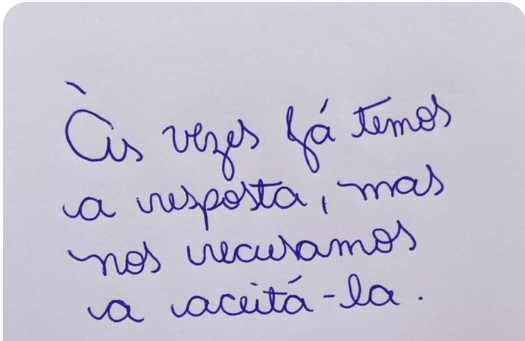 Às vezes já temos
a resposta, mas
nos recusamos
a aceitá-la.